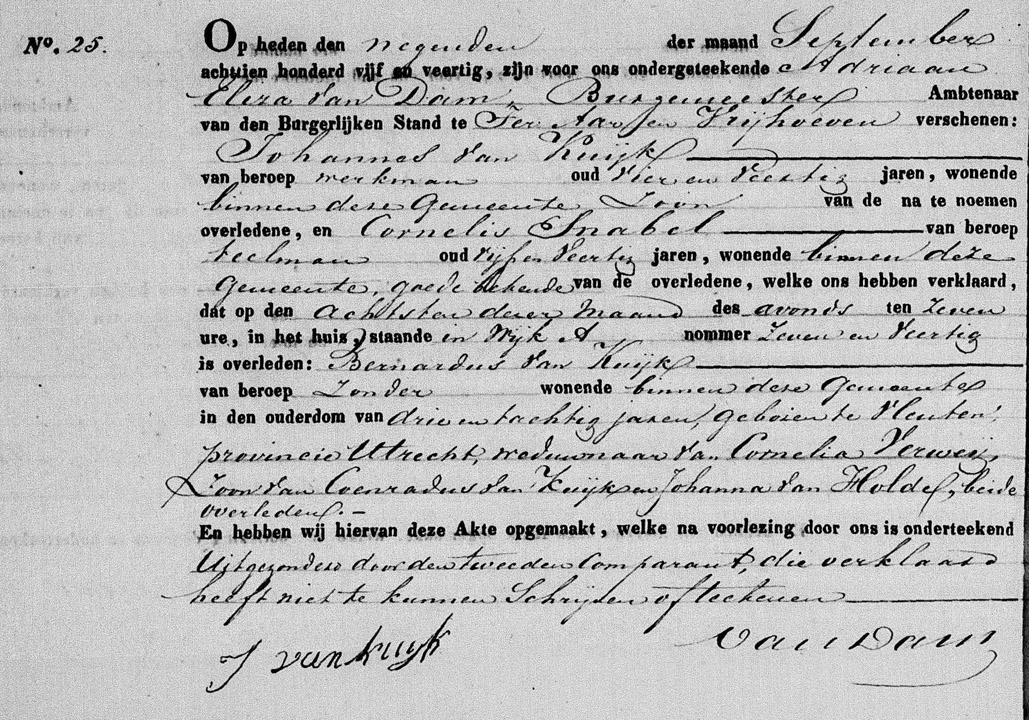 No. 25.
Op heden den negenden der maand September
achttien honderd vijf en veertig, zijn voor ons ondergeteekende Adriaan
Eliza van Dam, Burgemeester Ambtenaar
van den Burgerlijken Stand te Ter Aar en Vrijhoeven verschenen:
Johannes van Kuijk
van beroep werkman oud vier en veertig jaren, wonende
binnen deze Gemeente Zoon van de na te noemen
overledene, en Cornelis Snabel van beroep
teelman oud vijf en veertig jaren, wonende binnen deze
Gemeente, goede bekende van de overledene, welke ons hebben verklaard,
dat op den achtsten dezer maand des avonds ten zeven
ure, in het huis, staande in Wijk A nommer zeven en veertig
is overleden: Bernardus van Kuijk
van beroep zonder wonende binnen deze Gemeente
in den ouderdom van drie en tachtig jaren, geboren te Vleuten,
provincie Utrecht, weduwnaar van Cornelia Verweij,
Zoon van Coenradus van Kuijk en Johanna van Holde, beide
overleden.-
En hebben wij hiervan deze Akte opgemaakt, welke na voorlezing door ons is onderteekend
Uitgezonderd door den tweeden Comparant, die verklaard
heeft niet te kunnen Schrijven of teekenen
J van kuyk van Dam